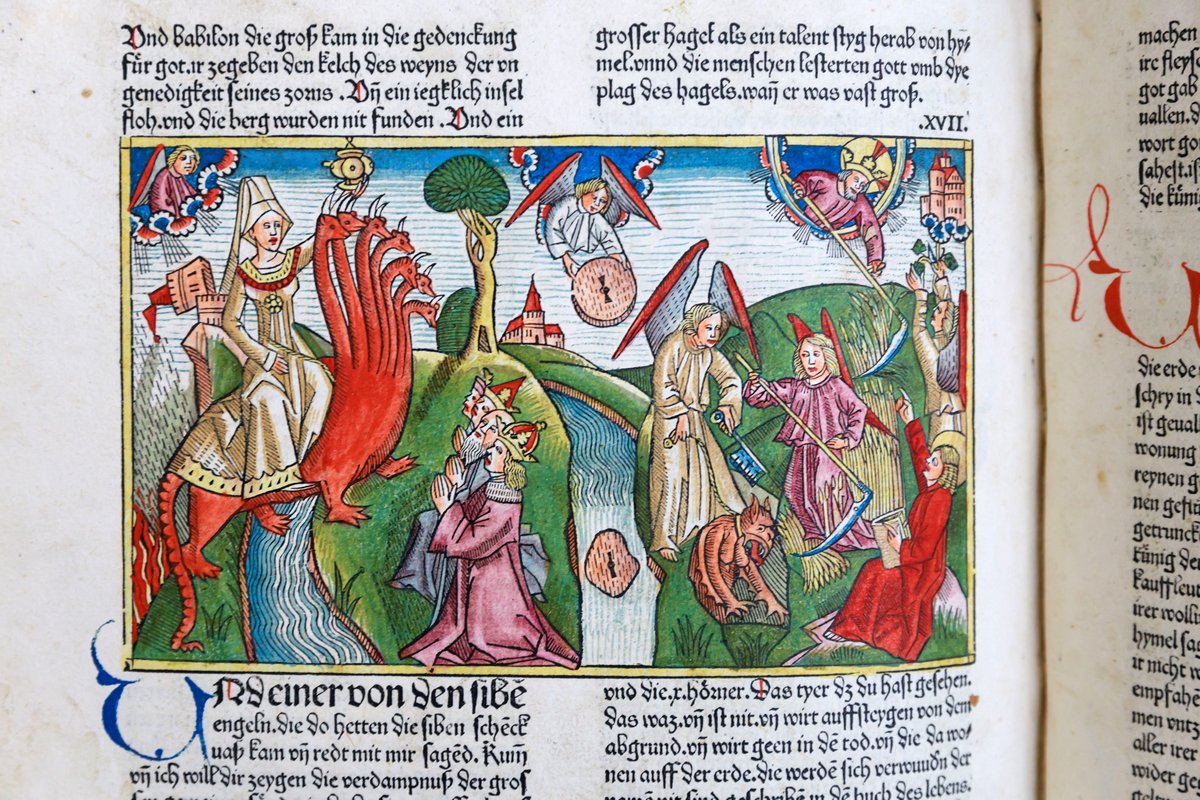 Vnd babilon die groß kam in die gedenckung
für got.ir zegeben den kelch des weyns der vn
genedigkeit seines zorns .Vñ ein iegklich insel
floh.vnd die berg wurden nit funden .Vnd ein
grosser hagel als ein talent styg herab von hy⸗
mel.vnnd die menschen lesterten gott vmb dye
plag des hagels.wañ er was vast groß.
.XVII.
VNd einer von den sibẽ
engeln.die do hetten die siben schẽck
uaß kam vñ redt mit mir sagẽd. Kum̃
vñ ich will dir zeygen die verdampnuß der gros
vnd die .x. hörner. Das tyer dz du hast gesehen.
das waz.vñ ist nit.vñ wirt auffsteygen von dem
abgrund.vñ wirt geen in dẽ tod.vñ die da wo⸗
nen auff der erde.die werdẽ sich verwundn der
namẽ nit sind geschribẽ in dẽ buch des lebens.
machen
irc fleysch
got gab
uallen.d
wort go
sahest.ist
die künig
die erde
schry in
ist geual
wonung
reynen g
nen gefi
getrunck
künig der
kauffleu
irer wollu
hymel sag
ir nicht
empfahe
men vntz
aller irer
wider ge